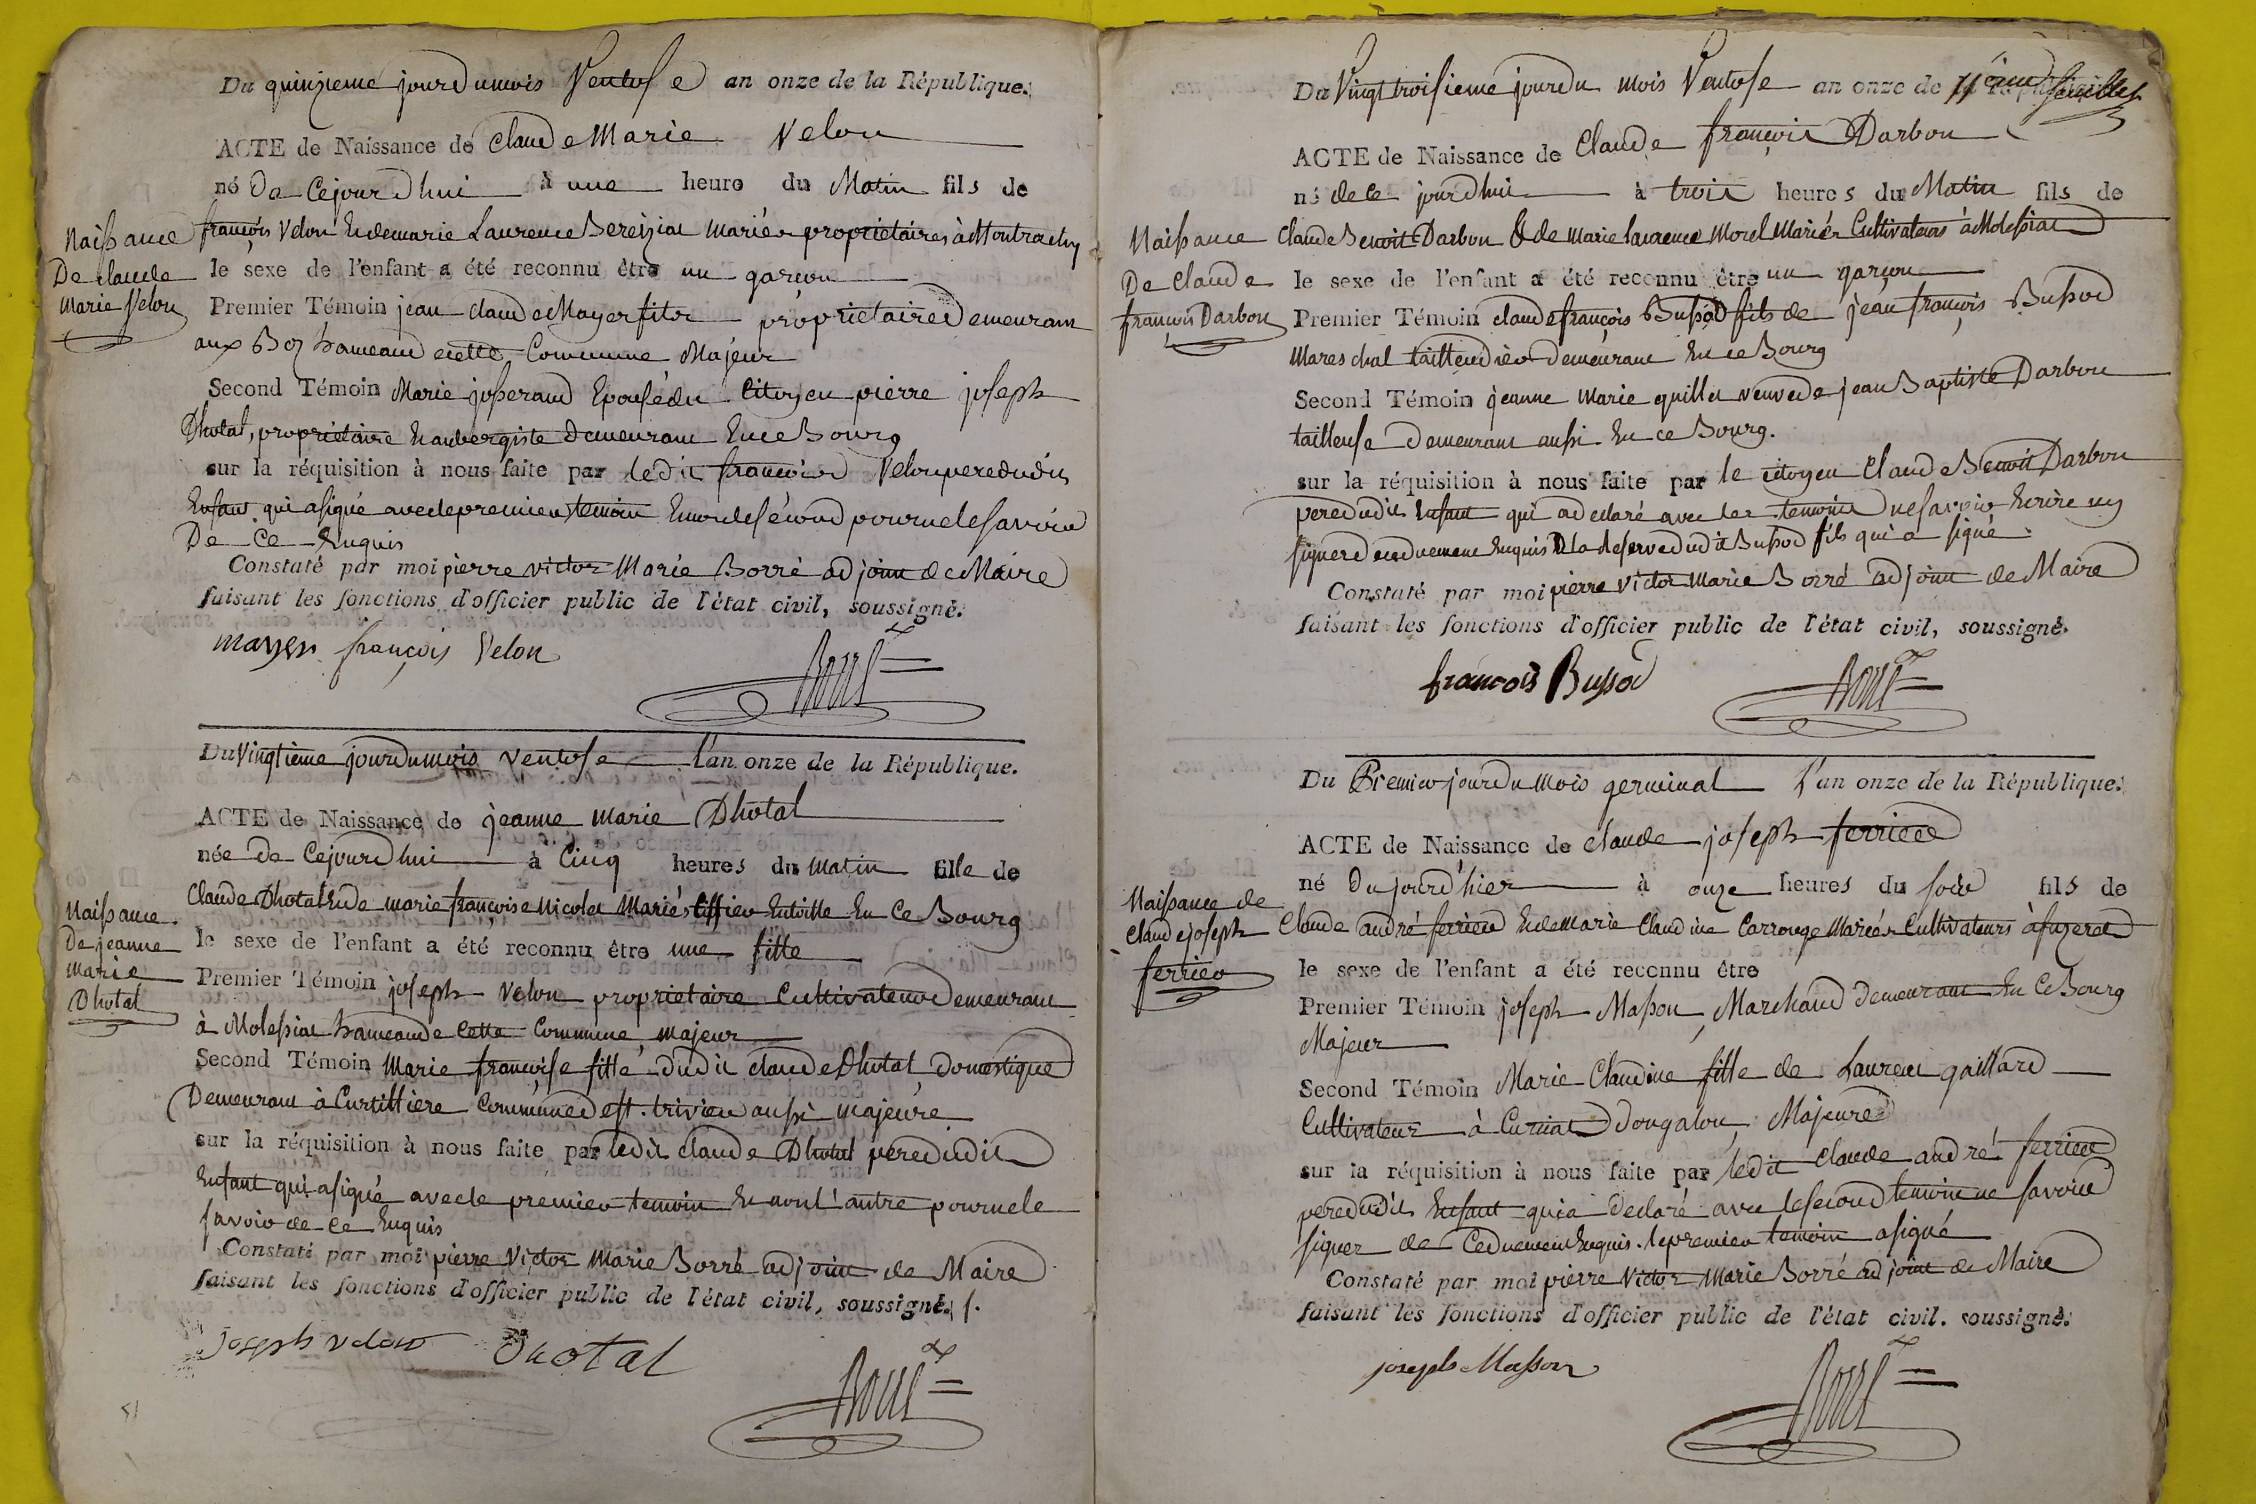 Du quinzieme jour du mois Ventose an onze de la République.
ACTE de Naissance de Claude Marie Velon
né De Cejourdhui à une heure du Matin fils de
Naissance
De claude
Marie Velon
françois Velon Et de marie Laurence Bereiziat mariés propriétaires à Montrachy
le sexe de l'enfant a été reconnu être un garçon
Premier Témoin jean claude Mayer fils propriétaire Demeurant
aux Boz hameau de cette Commune Majeur
Second Témoin Marie josserand Epouse du Citoyen pierre joseph
Dhotal, propriétaire Et aubergiste Demeurant En ce Bourg
sur la réquisition à nous faite par ledit françois Velon pere dudit
Enfant qui a signé avec le premier temoin Et non le sécond pour ne le savoir
De Ce Enquis
Constaté par moi pierre victor Marie Borré adjoint de Maire
faisant les fonctions d'officier public de l'état civil, soussigné.
mayer françois Velon
Borré
Du Vingtieme jour du mois Ventose L'an onze de la République.
ACTE de Naissance de jeanne marie Dhotal
née de Cejourdhui à Cinq heures du matin fille de
Naissance
De jeanne
marie
Dhotal
Claude Dhotal Et de marie françoise Nicolet Mariés tissier Entoille En Ce Bourg
le sexe de l'enfant a été reconnu être une fille
Premier Témoin joseph Velon propriétaire Cultivateur Demeurant
à Molessiat hameau de Cette Commune, majeur
Second Témoin Marie françoise fille dudit claude Dhotal, domestique
Demeurant à Curtillière Commune de st. trivier aussi majeure
sur la réquisition à nous faite par ledit claude Dhotal pere dudit
Enfant qui a signé avec le premier temoin Et non l'autre pour ne le
savoir de ce Enquis
Constaté par moi pierre Victor Marie Borré adjoint de Maire
faisant les fonctions d'officier public de l'état civil, soussigné.
joseph velon Dhotal
Borré
Du Vingt troisieme jour du mois Ventose an onze de la République
11eme feuillet
ACTE de Naissance de Claude françois Darbon
né de ce jourdhui à trois heures du Matin fils de
Naissance
De Claude
françois Darbon
Claude Benoit Darbon & de marie laurence Morel Mariés Cultivateurs à Molessiat
le sexe de l'enfant a été reconnu être un garçon
Premier Témoin claude françois Bussod fils de jean françois Bussod
Mareschal taillendier demeurant En ce Bourg
Second Témoin jeanne Marie quillet veuve de jean Baptiste Darbon
tailleuse Demeurant aussi En ce Bourg.
sur la réquisition à nous faite par le citoyen Claude Benoit Darbon
pere dudit Enfant qui a declaré avec les temoins ne savoir Ecrire ny
signer de ce duement Enquis à la reserve dudit Bussod fils qui a signé
Constaté par moi pierre Victor Marie Borré adjoint de Maire
faisant les fonctions d'officier public de l'état civil, soussigné.
françois Bussod
Borré
Du Premier jour du Mois germinal L'an onze de la République.
ACTE de Naissance de claude joseph ferrier
né Du jourd'hier à onze heures du soir fils de
Naissance de
claude joseph
ferrier
Claude andré ferrier Et de Marie Claudine Carronge Mariés Cultivateurs à fuzerel
le sexe de l'enfant a été reconnu être
Premier Témoin joseph Masson, Marchand Demeurant En Ce Bourg
Majeur
Second Témoin Marie Claudine fille de Laurent gaillard
Cultivateur à Curciat Dongalon, Majeure
sur la réquisition à nous faite par ledit claude andré ferrier
pere dudit Enfant qui a Declaré avec le second temoin ne savoir
signer de Ce duement Enquis. le premier temoin a signé
Constaté par moi pierre Victor Marie Borré adjoint de Maire
faisant les fonctions d'officier public de l'état civil. soussigné.
joseph Masson
Borré